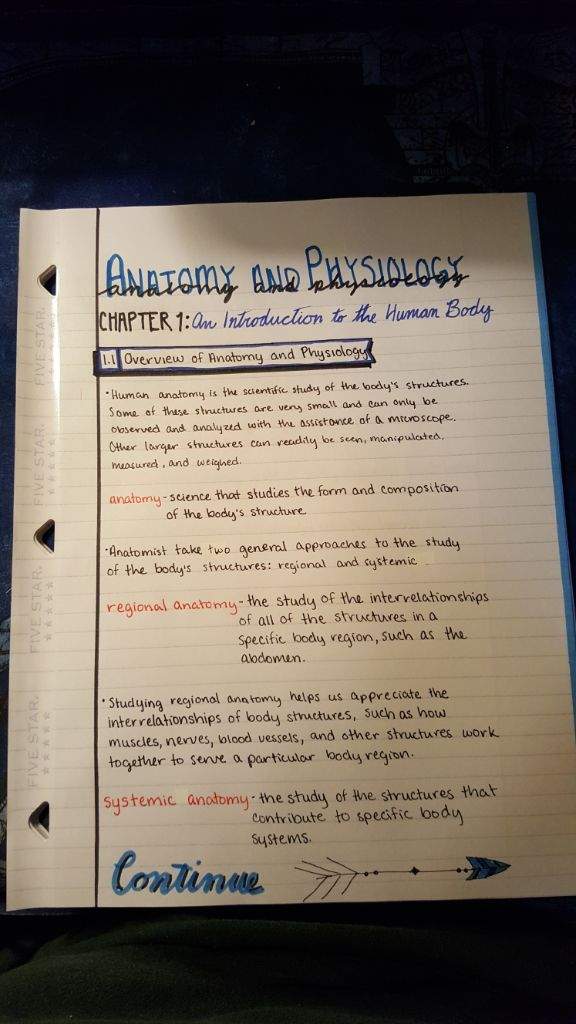 ANATOMY AND PHYSIOLOGY
anatomy and physiology
CHAPTER 1: An Introduction to the Human Body
1.1 Overview of Anatomy and Physiology
•Human anatomy is the scientific study of the body's structures.
Some of these structures are very small and can only be
observed and analyzed with the assistance of a microscope.
Other larger structures can readily be seen, manipulated,
measured, and weighed.
anatomy - science that studies the form and composition
of the body's structure
•Anatomist take two general approaches to the study
of the body's structures: regional and systemic
regional anatomy - the study of the interrelationships
of all of the structures in a
specific body region, such as the
abdomen.
•Studying regional anatomy helps us appreciate the
interrelationships of body structures, such as how
muscles, nerves, blood vessels, and other structures work
together to serve a particular body region.
systemic anatomy - the study of the structures that
contribute to specific body
systems.
Continue
FIVE STAR.
FIVE STAR.
FIVE STAR.
FIVE STAR.